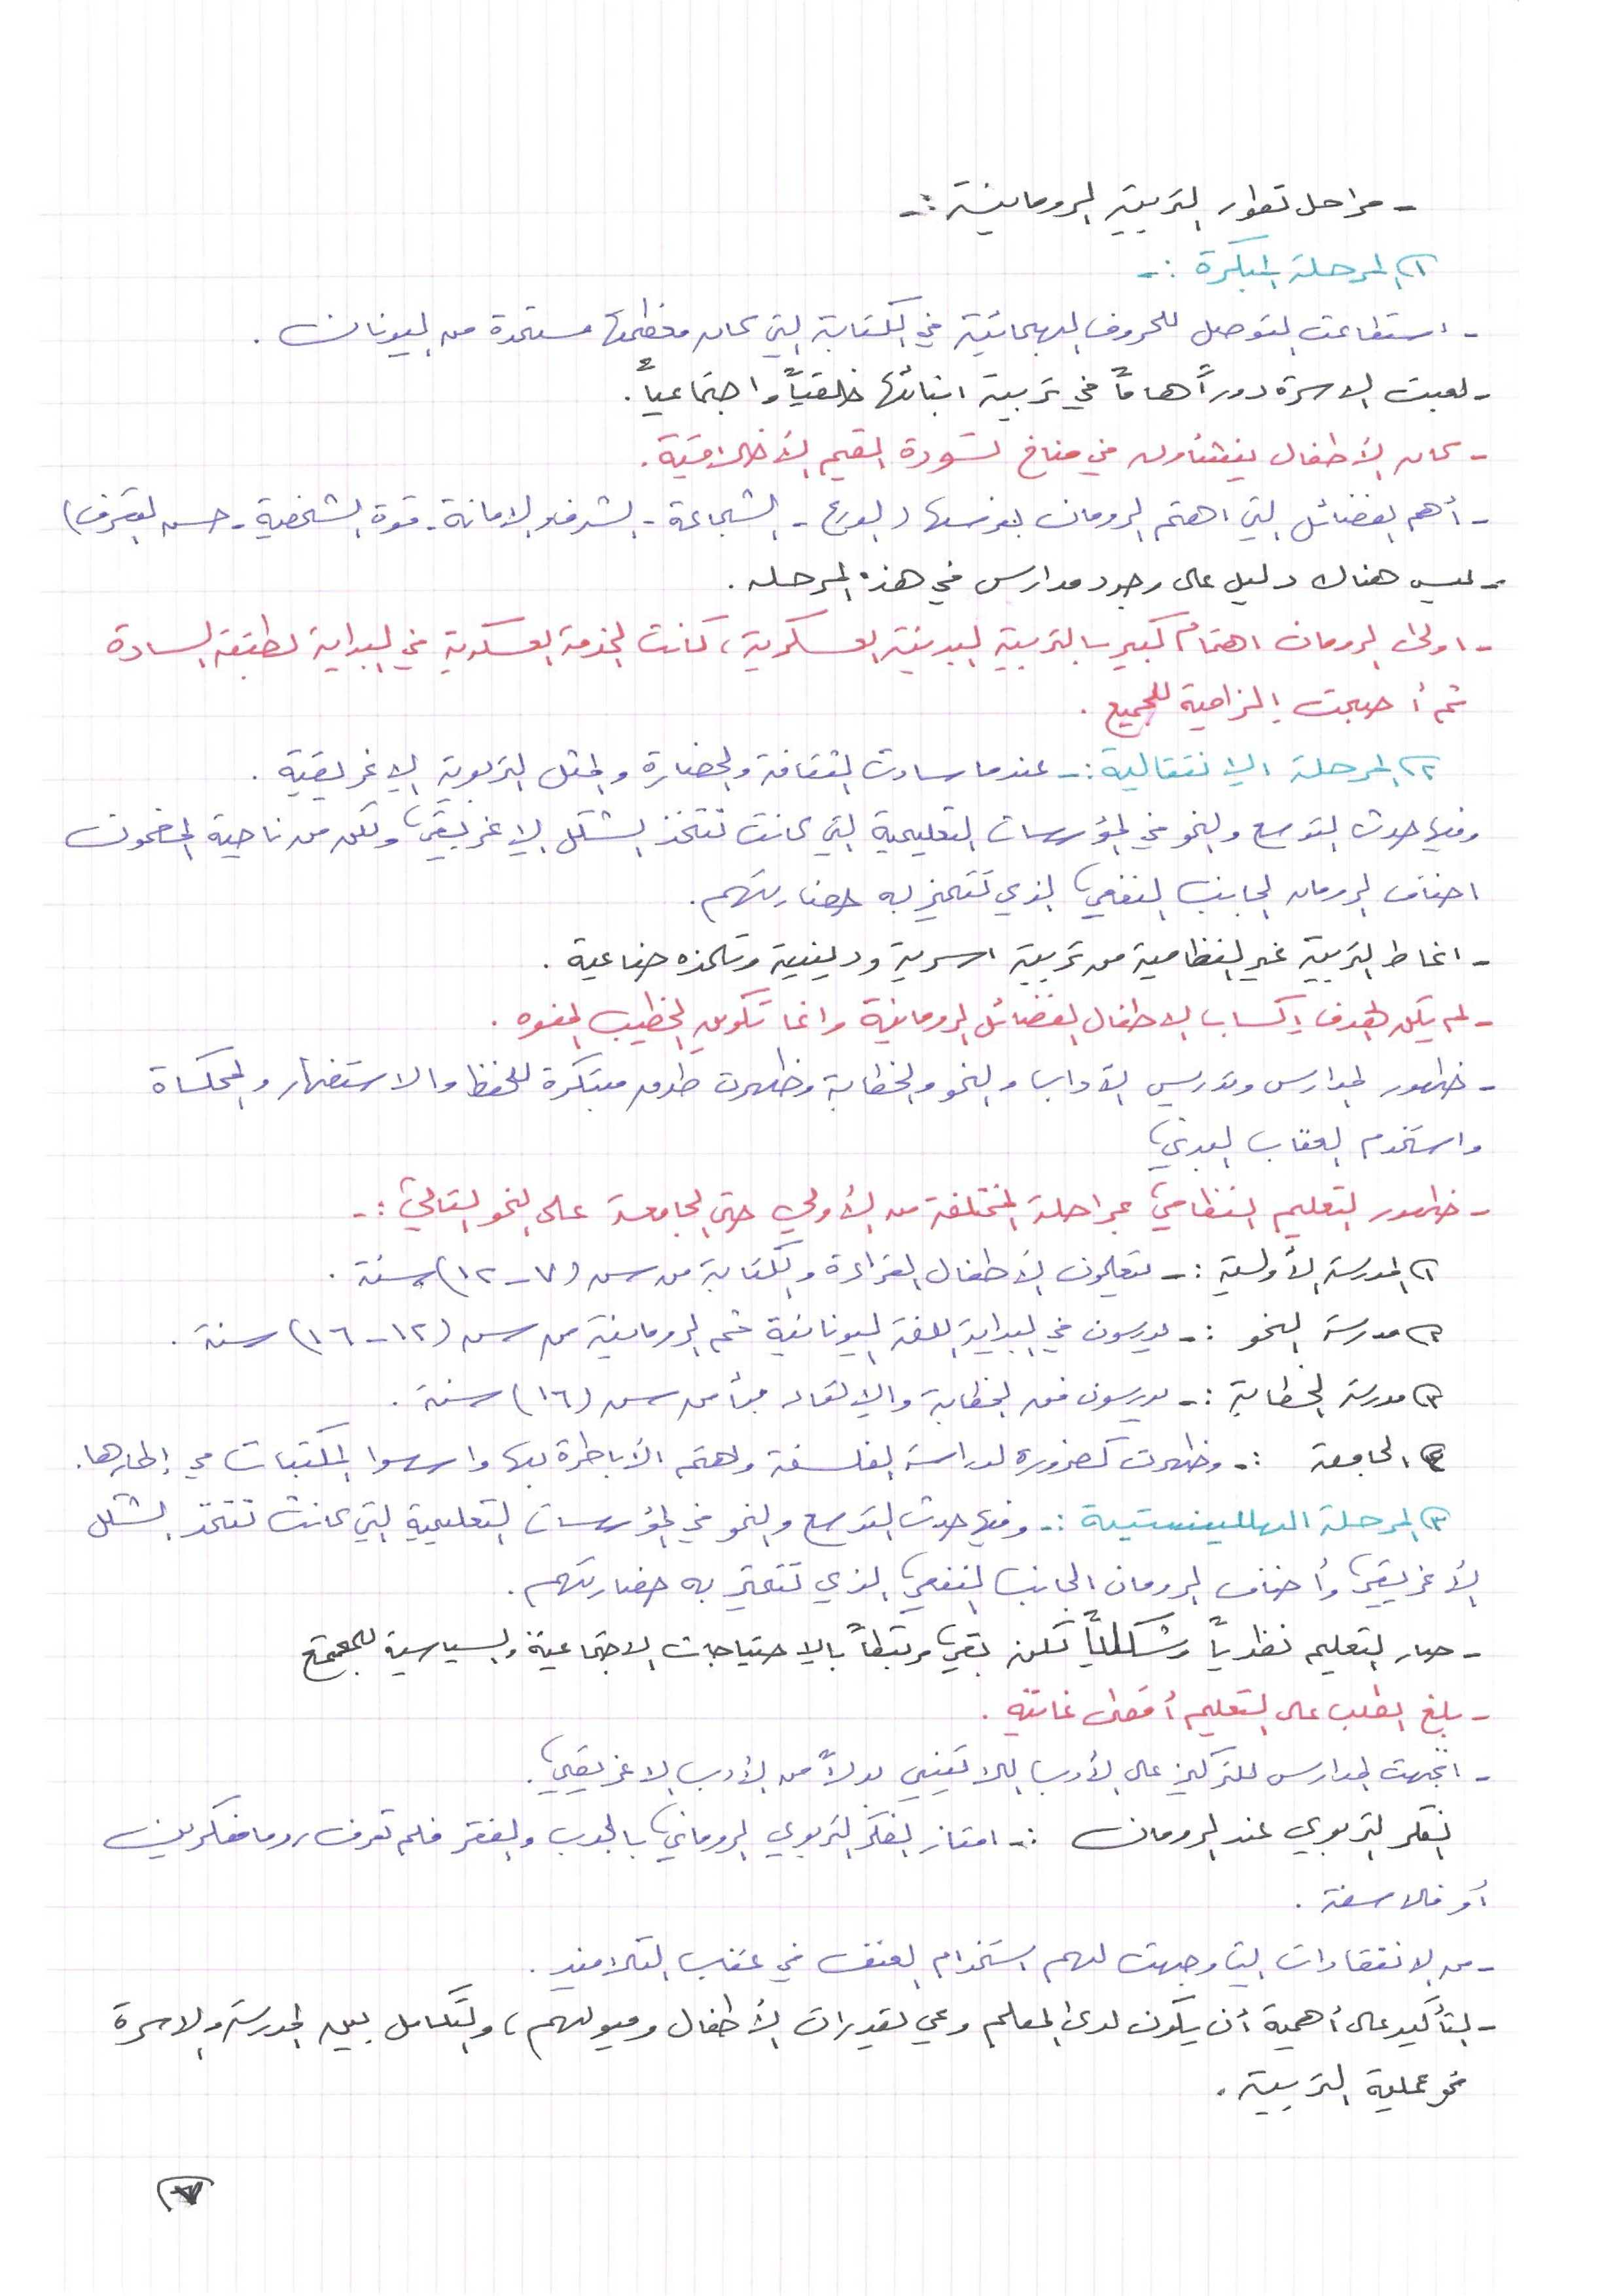 - مراحل تطور التربية الرومانية :-
١) المرحلة المبكرة :-
- استطاعت التوصل للحروف الهجائية في الكتابة التي كان معظمها مستمدة من اليونان .
- لعبت الاسرة دوراً هاماً في تربية ابنائها خلقياً واجتماعياً .
- كان الأطفال ينشأون في مناخ تسودة القيم الأخلاقية .
- أهم الفضائل التي اهتم الرومان بغرسها ( الورع - الشجاعة - الشرف والامانة - قوة الشخصية - حسن التصرف )
- ليس هناك دليل على وجود مدارس في هذه المرحله .
- اولى الرومان اهتمام كبير بالتربية البدنية العسكرية ، كانت الخدمة العسكرية في البداية لطبقة السادة
ثم أصبحت إلزامية للجميع .
٢) المرحلة الإنتقالية :- عندما سادت الثقافة والحضارة والمثل التربوية الإغريقية .
وفيها حدث التوسع والنمو في المؤسسات التعليمية التي كانت تتخذ الشكل الإغريقي ولكن من ناحية المضمون
اضاف الرومان الجانب النفعي الذي تتميز به حضارتهم .
- انماط التربية غير النظامية من تربية اسرية ودينية وتلمذه صناعية .
- لم يكن الهدف إكساب الاطفال الفضائل الرومانية وانما تكوين الخطيب المفوه .
- ظهور المدارس وتدريس الآداب والنحو والخطابة وظهرت طرق مبتكرة للحفظ والاستظهار والمحاكاة
واستخدم العقاب البدني
- ظهور التعليم النظامي بمراحلة المختلفة من الأولي حتى الجامعة على النحو التالي :-
١) المدرسة الأولية :- يتعلمون الأطفال القراءة والكتابة من سن (٧-١٢) سنة .
٢) مدرسة النحو :- يدرسون في البداية اللغة اليونانية ثم الرومانية من سن (١٢-١٦) سنة .
٣) مدرسة الخطابة :- يدرسون فن الخطابة والإلقاء بدأ من سن (١٦) سنة .
٤) الجامعة :- وظهرت كضرورة لدراسة الفلسفة واهتم الأباطرة بها واسسوا المكتبات في إطارها .
٣) المرحلة الهللينستية :- وفيها حدث التوسع والنمو في المؤسسات التعليمية التي كانت تتخذ الشكل
الأغريقي وأضاف الرومان الجانب النفعي الذي تتميز به حضارتهم .
- صار التعليم نظرياً وشكلياً لكن بقي مرتبطاً بالإحتياجات الاجتماعية والسياسية للمجتمع
- بلغ الطلب على التعليم أقصى غايته .
- اتجهت المدارس للتركيز على الأدب اللاتيني بدلاً من الأدب الاغريقي .
الفكر التربوي عند الرومان :- امتاز الفكر التربوي الروماني بالجدب والفقر فلم تعرف روما مفكرين
أو فلاسفة .
- من الانتقادات التي وجهت لهم استخدام العنف في عقاب التلاميذ .
- التأكيد على أهمية أن يكون لدى المعلم وعي لقدرات الأطفال وميولهم ، والتكامل بين المدرسة والاسرة
نحو عملية التربية .